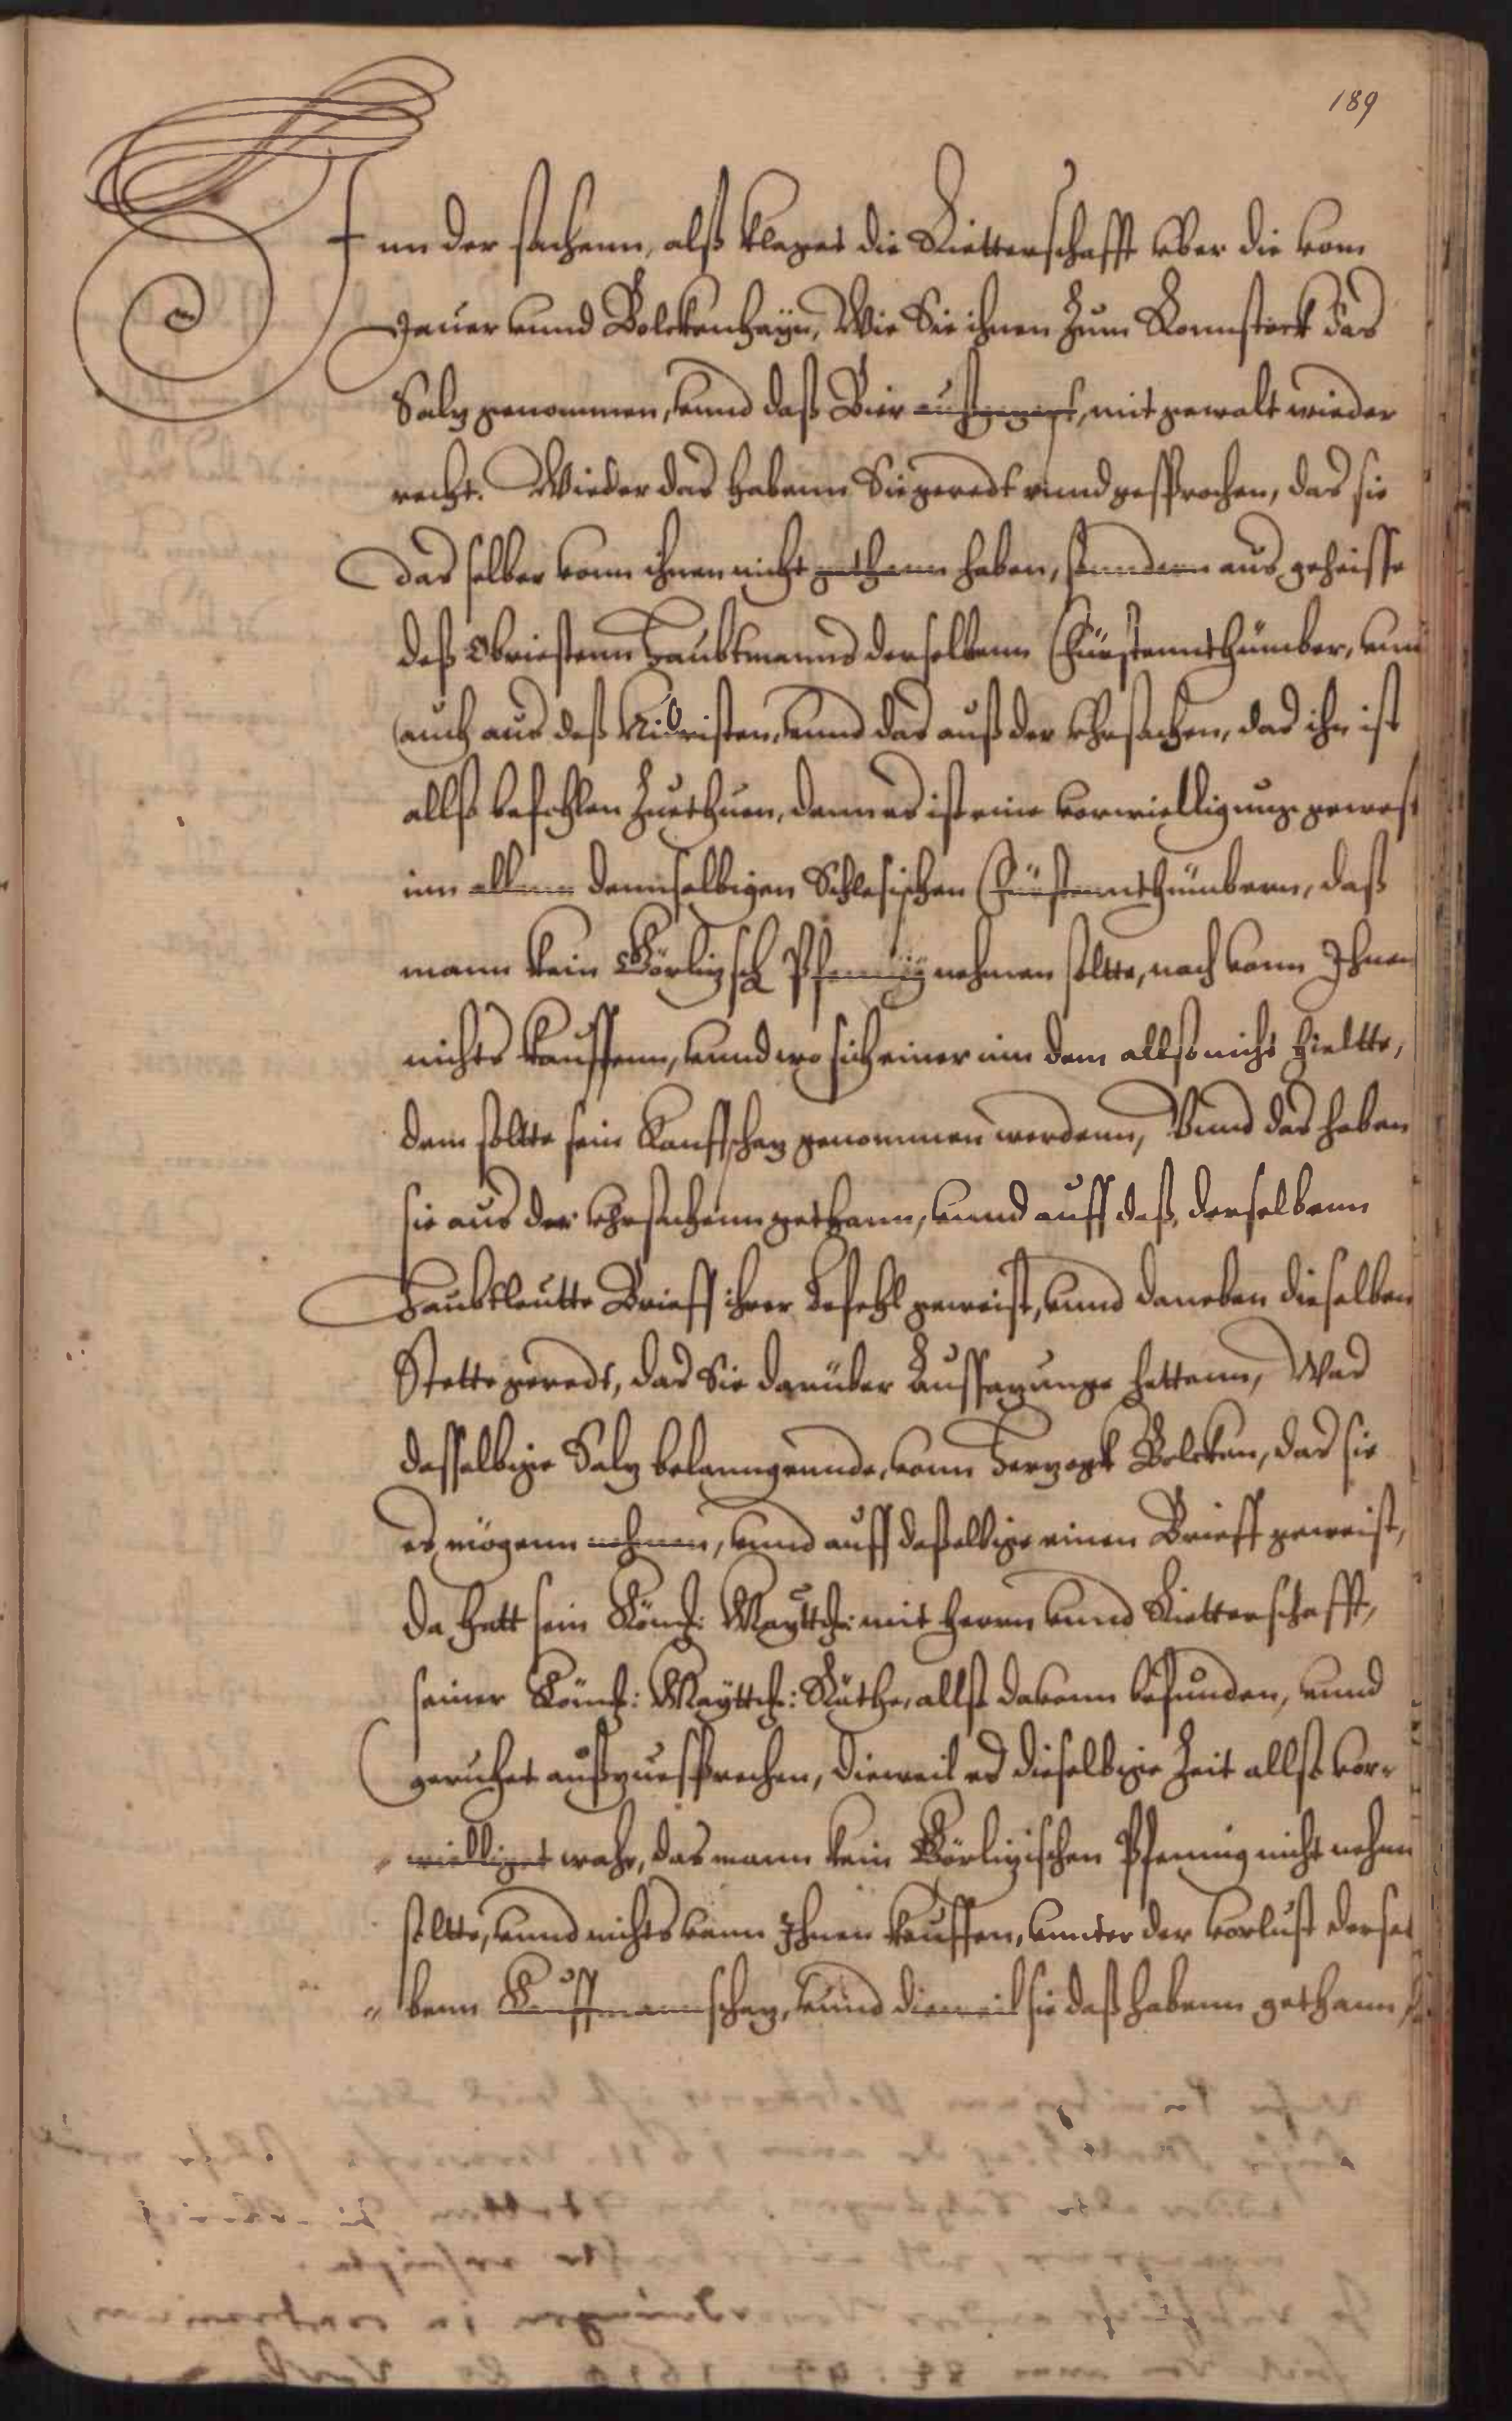 189
Inn der sachenn, alß klaget die Ritterschafft vber die vom
Jauer vnnd Bolckenhayn, Wie Sie ihnen zum Ronnstock das
Saltz genommen, vnnd daß Bier außgegost, mit gewalt wieder
recht. Wieder das habenn Sie geredt vnnd gesprochen, das sie
das selber vonn ihnen nicht gethann haben, sonndern aus geheisse
deß Obriestenn Haubtmanns derselbenn Fürstennthümber, vnnd
auch aus deß Nidristen, vnnd das auß der Vhrsachen, das ihn ist
allso befohlen zuethuen, dann es ist eine vorwielligung gewest
inn allenn dennselbigen Schlesischen Fürstennthümbern, daß
mann kein Görlizsch Pfennig nehmen soltte, noch vonn Ihnen
nichts kauffenn, vnnd wo sich einer inn dem allso nicht hieltte,
dem soltte sein Kauffschaz genommen werdenn, Vnnd das haben
sie aus der Vhrsachenn gethann, vnnd auff daß, derselbenn
Haubtleutte Brieff ihrer Befehl geweist, vnnd daneben dieselben
Stette geredt, das Sie darüber Aussazunge hettenn, Was
dasselbige Salz belanngennde, vonn Herzogk Bolcken, das sie
es mögenn nehmen, vnnd auff daßelbige einen Brieff geweist,
da hatt sein Könich: Mayttch: mit Herrn vnnd Ritterschafft,
seiner Könich: Mayttch: Räthe, allso dauonn befunden, vnnd
geruhet außzuesprechen, dieweil es dieselbige Zeit allso vor-
williget wahr, das mann kein Görlizischen Pfennig nicht nehmen
soltte, vnnd nichts vann Ihnen kauffen, vnnter der vorlust dersel
benn Kauffmannschaz, vnnd dieweil sie daß habenn gethann,